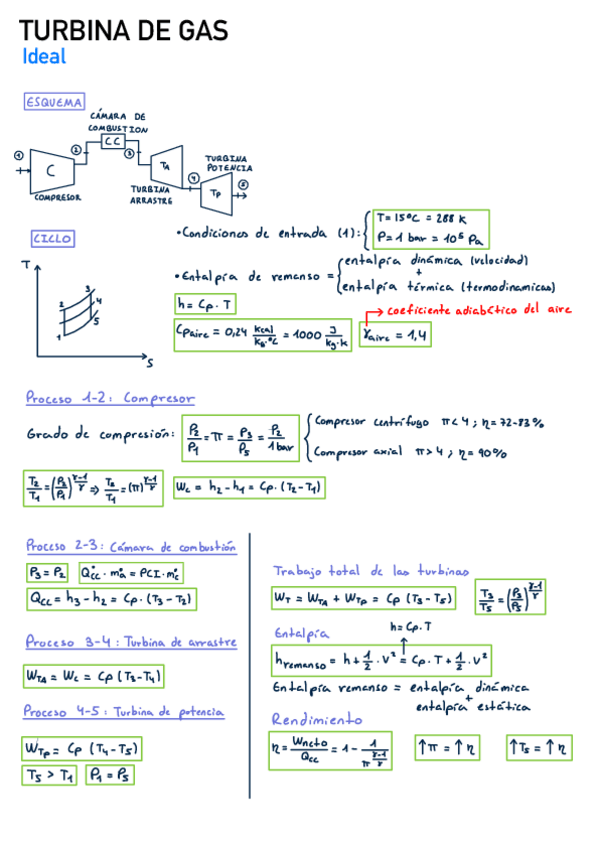 TURBINA DE GAS
Ideal
ESQUEMA
CÁMARA DE
COMBUSTION
1
2
CC
3
C
TA
4
TURBINA
POTENCIA
5
TP
COMPRESOR
TURBINA
ARRASTRE
CICLO
T
1
2
3
4
5
S
• Condiciones de entrada (1): { T = 15ºC = 288 K
P = 1 bar = 10⁵ Pa
• Entalpía de remanso = { entalpía dinámica (velocidad)
+
entalpía térmica (termodinamicas)
h = Cp · T
→ coeficiente adiabático del aire
Cp aire = 0,24 kcal/kg·ºC = 1000 J/kg·K
γaire = 1,4
Proceso 1-2: Compresor
Grado de compresión: P2/P1 = π = P3/P5 = P2/1 bar
Compresor centrífugo π < 4 ; η = 72-83%
Compresor axial π > 4 ; η = 90%
T2/T1 = (P2/P1)^(γ-1/γ) ⇒ T2/T1 = (π)^(γ-1/γ)
Wc = h2 - h1 = Cp · (T2 - T1)
Proceso 2-3: Cámara de combustión
P3 = P2
Q̇cc · ṁa = PCI · ṁc
Qcc = h3 - h2 = Cp · (T3 - T2)
Proceso 3-4: Turbina de arrastre
WTA = Wc = Cp (T3 - T4)
Proceso 4-5: Turbina de potencia
WTp = Cp (T4 - T5)
T5 > T1
P1 = P5
Trabajo total de las turbinas
WT = WTA + WTp = Cp (T3 - T5)
T3/T5 = (P3/P5)^(γ-1/γ)
Entalpía
h = Cp · T
hremanso = h + 1/2 · v² = Cp · T + 1/2 · v²
Entalpía remanso = entalpía dinámica
+
entalpía estática
Rendimiento
η = Wneto/Qcc = 1 - 1/π^(γ-1/γ)
↑π = ↑η
↑T3 = ↑η